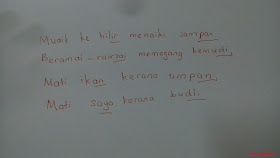 Mudik ke hilir menaiki sampan,
Beramai-ramai memegang kemudi,
Mati ikan kerana umpan,
Mati saya kerana budi.